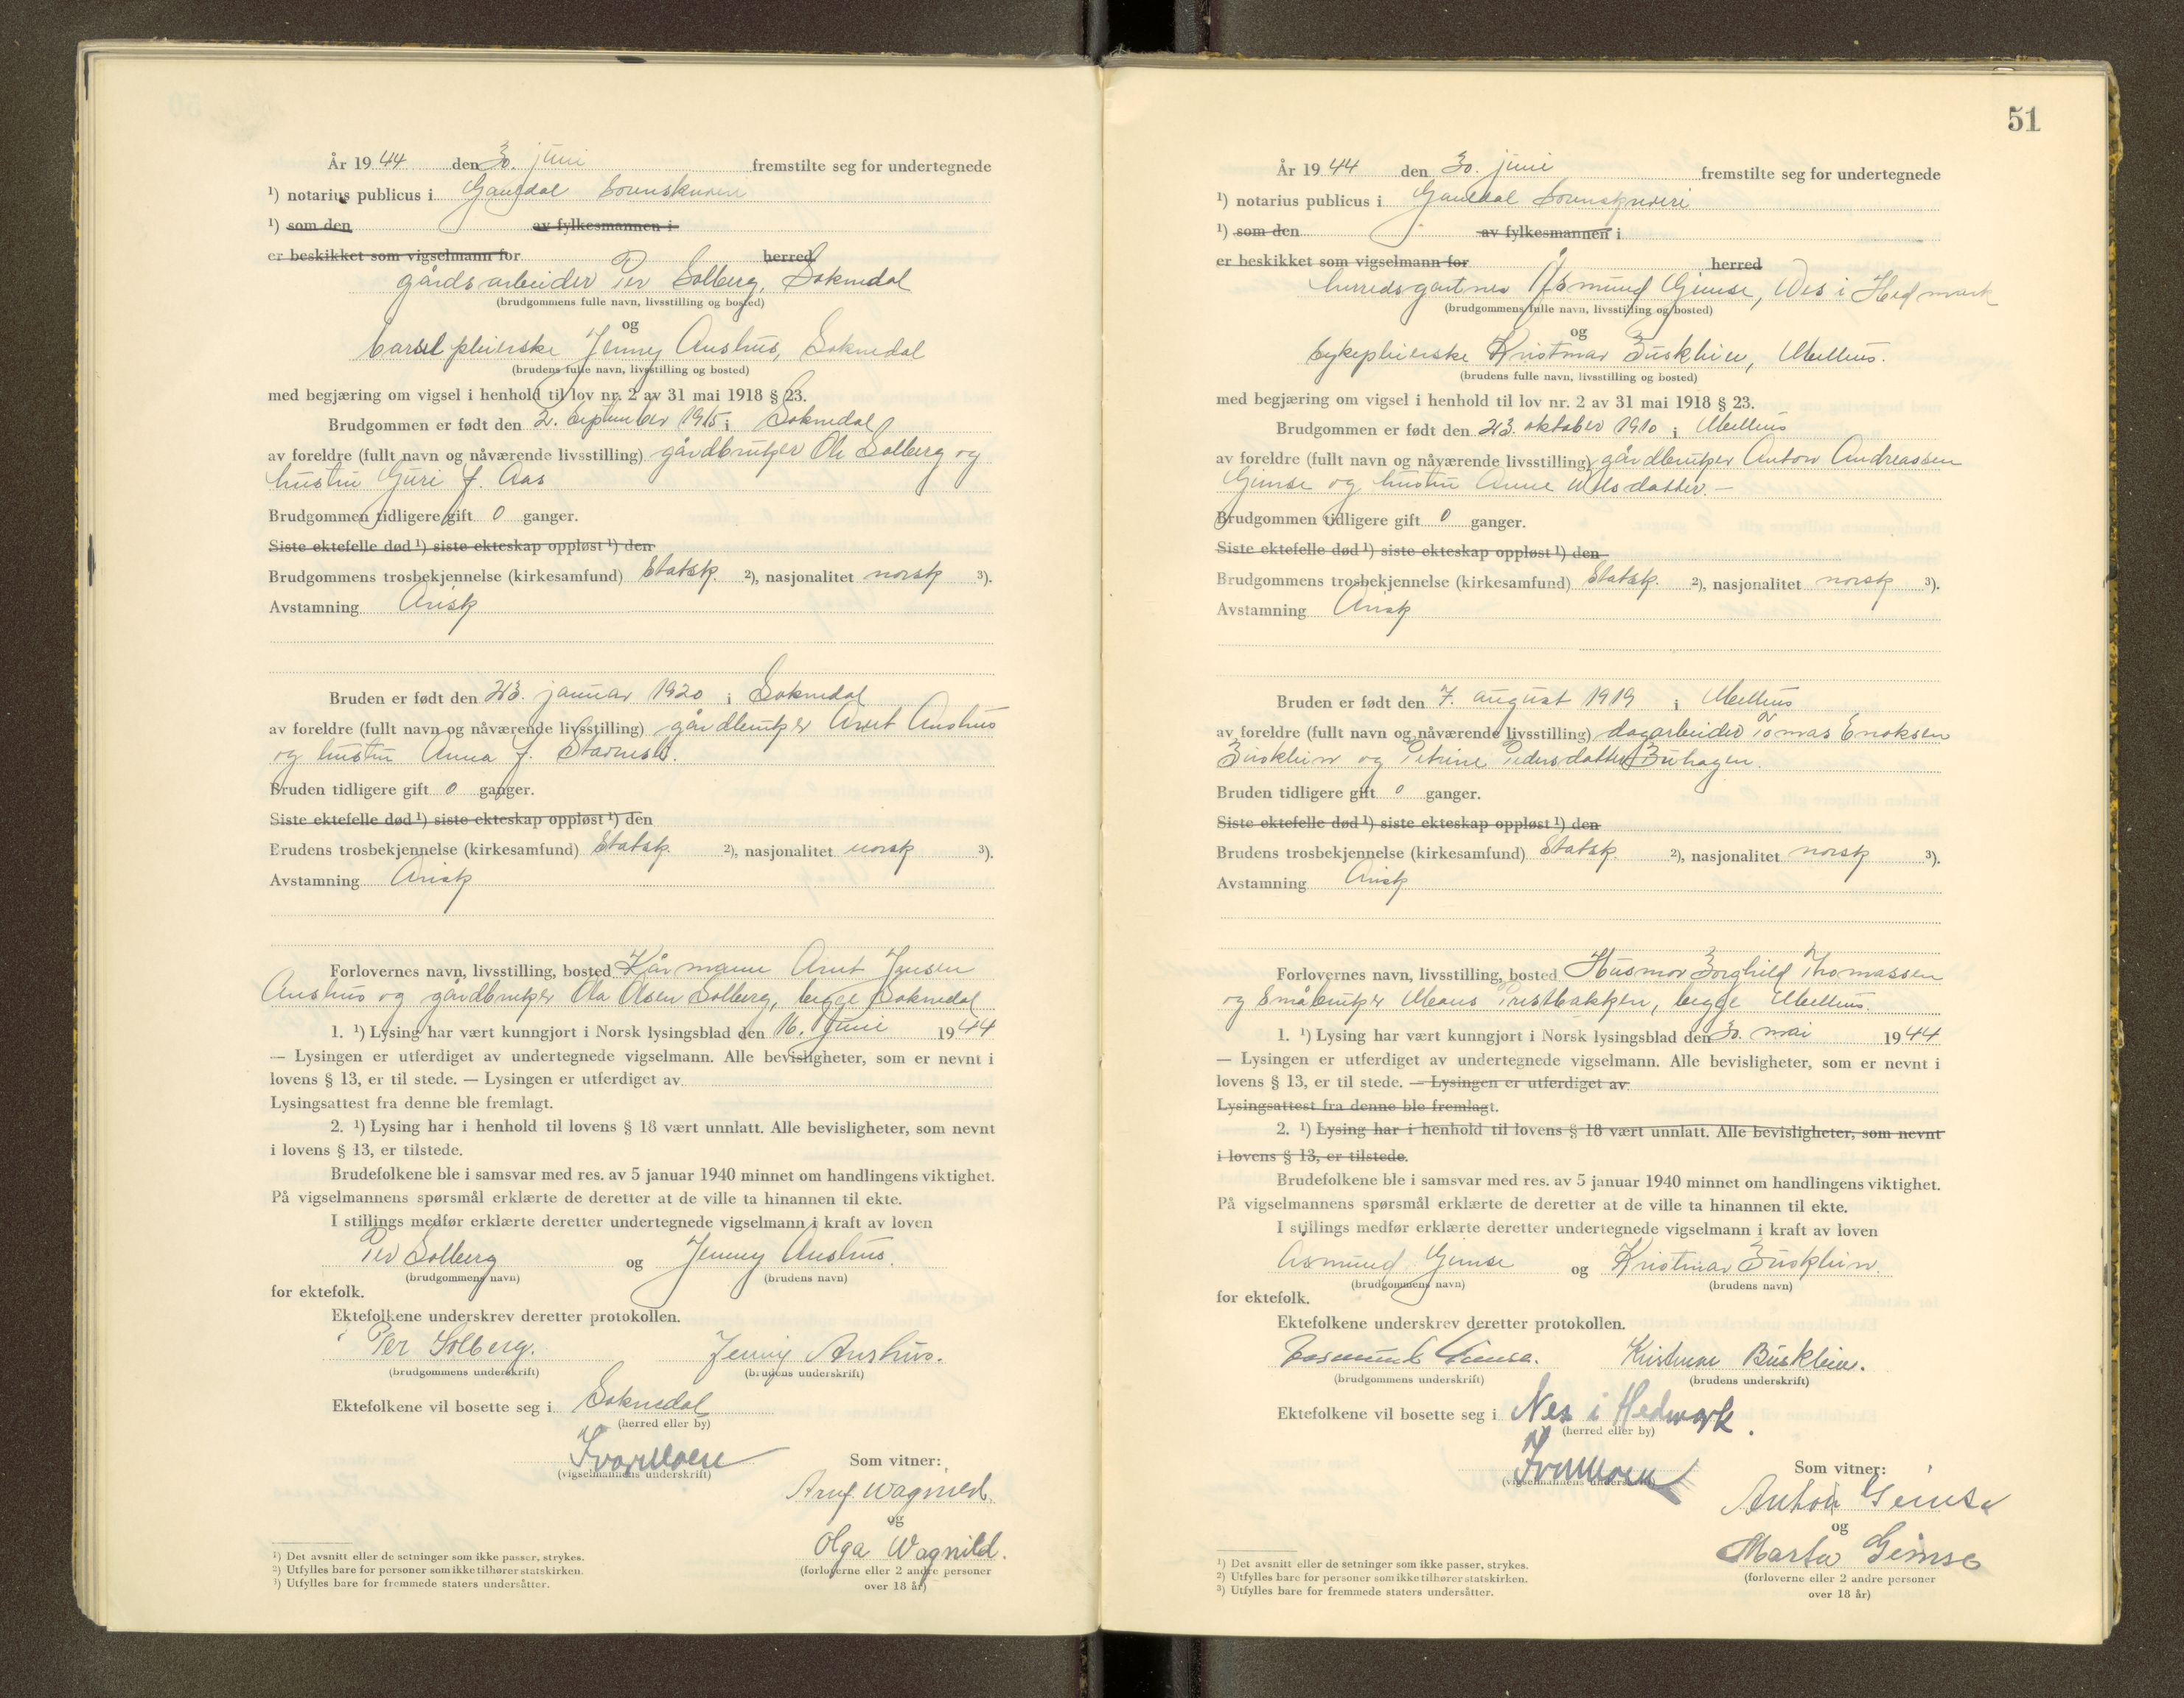 År 1944 den 30. juni fremstilte seg for undertegnede
¹) notarius publicus i Gauldal Sorenskriveri
¹) som den av fylkesmannen i
er beskikket som vigselmann for herred
gårdsarbeider Per Solberg, Soknedal
(brudgommens fulle navn, livsstilling og bosted)
og
barselpleierske Jenny Aushus, Soknedal
(brudens fulle navn, livsstilling og bosted)
med begjæring om vigsel i henhold til lov nr. 2 av 31 mai 1918 § 23.
Brudgommen er født den 2. september 1915 i Soknedal
av foreldre (fullt navn og nåværende livsstilling) gårdbruker Ole Solberg og
hustru Guri f. Aas
Brudgommen tidligere gift 0 ganger.
Siste ektefelle død ¹) siste ekteskap oppløst ¹) den
Brudgommens trosbekjennelse (kirkesamfund) Statsk. ²), nasjonalitet norsk ³).
Avstamning Arisk
Bruden er født den 23. januar 1920 i Soknedal
av foreldre (fullt navn og nåværende livsstilling) gårdbruker Arnt Aushus
og hustru Anna f.
Bruden tidligere gift 0 ganger.
Siste ektefelle død ¹) siste ekteskap oppløst ¹) den
Erudens trosbekjennelse (kirkesamfund) Statsk. ²), nasjonalitet norsk ³).
Avstamning Arisk
Forlovernes navn, livsstilling, bosted Kårmann Arnt Jensen
Aushus og gårdbruker Ola Olsen Solberg, begge Soknedal
1. ¹) Lysing har vært kunngjort i Norsk lysingsblad den 16. juni 1944
— Lysingen er utferdiget av undertegnede vigselmann. Alle bevisligheter, som er nevnt i
lovens § 13, er til stede. — Lysingen er utferdiget av
Lysingsattest fra denne ble fremlagt.
2. ¹) Lysing har i henhold til lovens § 18 vært unnlatt. Alle bevisligheter, som nevnt
i lovens § 13, er tilstede.
Brudefolkene ble i samsvar med res. av 5 januar 1940 minnet om handlingens viktighet.
På vigselmannens spørsmål erklærte de deretter at de ville ta hinannen til ekte.
I stillings medfør erklærte deretter undertegnede vigselmann i kraft av loven
Per Solberg og Jenny Aushus.
(brudgommens navn) (brudens navn)
for ektefolk.
Ektefolkene underskrev deretter protokollen.
Per Solberg. Jenny Aushus.
(brudgommens underskrift) (brudens underskrift)
Ektefolkene vil bosette seg i Soknedal
(herred eller by)
Ivar Moese
(vigselmannens underskrift)
Som vitner:
Wagnild.
og
Olga Wagnild.
(forloverne eller 2 andre personer
over 18 år)
¹) Det avsnitt eller de setninger som ikke passer, strykes.
²) Utfylles bare for personer som ikke tilhører statskirken.
³) Utfylles bare for fremmede staters undersåtter.
51
År 1944 den 30. juni fremstilte seg for undertegnede
¹) notarius publicus i Gauldal Sorenskriveri
¹) som den av fylkesmannen i
er beskikket som vigselmann for herred
herredsgartner Åsmund Gimse, Nes i Hedmark
(brudgommens fulle navn, livsstilling og bosted)
og
sykepleierske Kristmar Buskhein, Melhus.
(brudens fulle navn, livsstilling og bosted)
med begjæring om vigsel i henhold til lov nr. 2 av 31 mai 1918 § 23.
Brudgommen er født den 23. oktober 1910 i Melhus
av foreldre (fullt navn og nåværende livsstilling) gårdbruker Anton Andreassen
Gimse og hustru Anne Nilsdatter. —
Brudgommen tidligere gift 0 ganger.
Siste ektefelle død ¹) siste ekteskap oppløst ¹) den
Brudgommens trosbekjennelse (kirkesamfund) Statsk. ²), nasjonalitet norsk ³).
Avstamning Arisk
Bruden er født den 7. august 1919 i Melhus
av foreldre (fullt navn og nåværende livsstilling) dagarbeider Tomas Enoksen
Buskhein og Petrine Pedersdatter Buhagen.
Bruden tidligere gift 0 ganger.
Siste ektefelle død ¹) siste ekteskap oppløst ¹) den
Brudens trosbekjennelse (kirkesamfund) Statsk. ²), nasjonalitet norsk ³).
Avstamning Arisk
Forlovernes navn, livsstilling, bosted Husmor Borghild Thomassen
og Småbruker Mons Prestbakken, begge Melhus.
1. ¹) Lysing har vært kunngjort i Norsk lysingsblad den 30. mai 1944
— Lysingen er utferdiget av undertegnede vigselmann. Alle bevisligheter, som er nevnt i
lovens § 13, er til stede. — Lysingen er utferdiget av
Lysingsattest fra denne ble fremlagt.
2. ¹) Lysing har i henhold til lovens § 18 vært unnlatt. Alle bevisligheter, som nevnt
i lovens § 13, er tilstede.
Brudefolkene ble i samsvar med res. av 5 januar 1940 minnet om handlingens viktighet.
På vigselmannens spørsmål erklærte de deretter at de ville ta hinannen til ekte.
I stillings medfør erklærte deretter undertegnede vigselmann i kraft av loven
Åsmund Gimse og Kristmar Buskhein.
(brudgommens navn) (brudens navn)
for ektefolk.
Ektefolkene underskrev deretter protokollen.
Aasmund Gimse. Kristmar Buskhein.
(brudgommens underskrift) (brudens underskrift)
Ektefolkene vil bosette seg i Nes i Hedmark.
(herred eller by)
(vigselmannens underskrift)
Som vitner:
Anton Gimse
og
Marta Gimse
(forloverne eller 2 andre personer
over 18 år)
¹) Det avsnitt eller de setninger som ikke passer, strykes.
²) Utfylles bare for personer som ikke tilhører statskirken.
³) Utfylles bare for fremmede staters undersåtter.